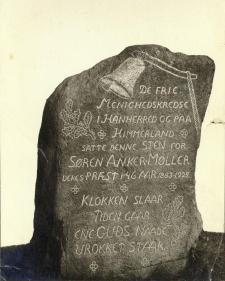 DE FRIE
MENIGHEDSKREDSE
I HANHERRED OG PAA
HIMMERLAND
SATTE DENNE STEN FOR
SØREN ANKER-MØLLER
DERES PRÆST I 46 AAR 1883-1928
KLOKKEN SLAAR
TIDEN GAAR
ENE GUDS NAADE
UROKKET STAAR